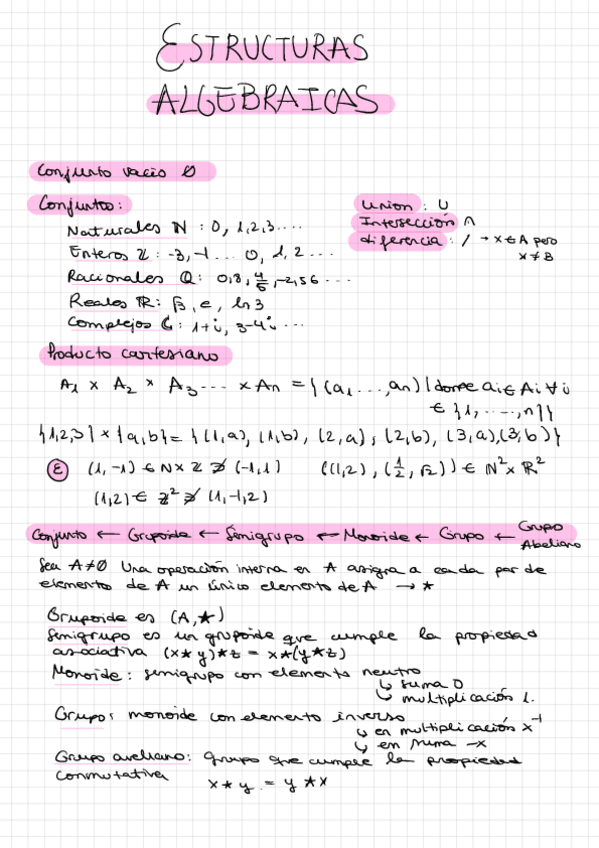 ESTRUCTURAS
ALGEBRAICAS
Conjunto vacio ∅
Conjuntos:
Naturales ℕ : 0, 1,2,3....
Enteros ℤ : -3, -1 ... 0, 1, 2 ...
Racionales ℚ: 0,8, 4/5, -2,56 ...
Reales ℝ: √3, e, ln 3
Complejos ℂ: 1+i, 3-4i ...
Union : ∪
Intersección ∩
diferencia : / → x ∈ A pero
x ≠ B
Producto cartesiano
A₁ x A₂ x A₃ .... x An = {(a₁ ..., an) | donde ai ∈ Ai ∀ i
∈ {1, ...., n}}
{1,2,3} x {a,b} = {(1,a), (1,b), (2,a), (2,b), (3,a), (3,b)}
E (1,-1) ∈ ℕ x ℤ ∌ (-1,1) ((1,2), (1/2, √2)) ∈ ℕ² x ℝ²
(1,2) ∈ ℤ² ∌ (1,-1,2)
Conjunto ← Grupoide ← Semigrupo ← Monoide ← Grupo ← Grupo Abeliano
Sea A ≠ ∅ Una operación interna en A asigna a cada par de
elemento de A un único elemento de A → ★
Grupoide es (A,★)
Semigrupo es un grupoide que cumple la propiedad
asociativa (x★y)★z = x★(y★z)
Monoide: semigrupo con elemento neutro
↳ suma 0
↳ multiplicación 1.
Grupo: monoide con elemento inverso
↳ en multiplicación x⁻¹
↳ en suma -x
Grupo aveliano: grupo que cumple la propiedad
conmutativa x ★ y = y ★ x